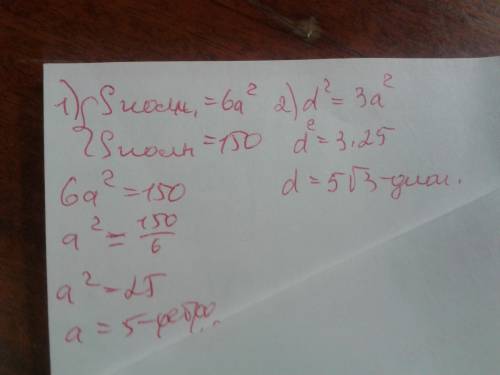 1) { Sполн. = 6a²
Sполн = 150
6a² = 150
a² = 150/6
a² = 25
a = 5 - ребро.
2) d² = 3a²
d² = 3.25
d = 5√3 - диаг.